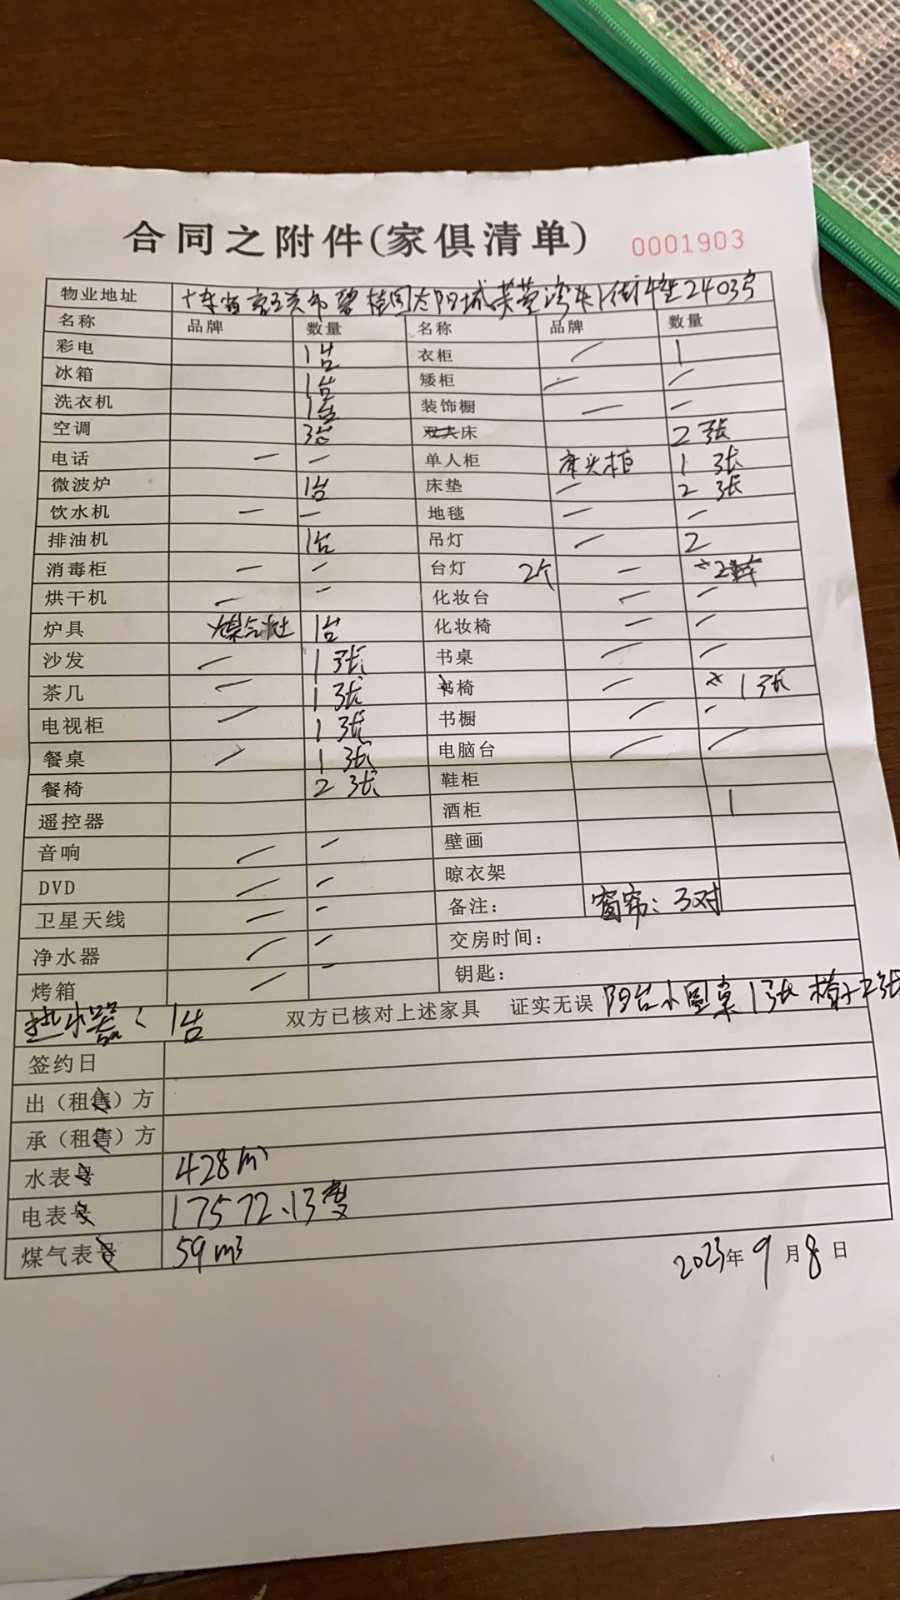 合同之附件(家俱清单) 0001903
物业地址 碧桂园太阳城芙蓉湾 街 座2403号
名称 品牌 数量 名称 品牌 数量
彩电 1台 衣柜 — 1
冰箱 1台 矮柜 — —
洗衣机 1台 装饰橱 — —
空调 3台 床 2张
电话 — — 单人柜 床头柜 1张
微波炉 1台 床垫 — 2张
饮水机 — — 地毯 — —
排油机 1台 吊灯 — 2
消毒柜 — — 台灯 2个 —
烘干机 — — 化妆台 — —
炉具 煤气灶 1台 化妆椅 — —
沙发 — 1张 书桌 — —
茶几 — 1张 椅 — 1张
电视柜 — 1张 书橱 — —
餐桌 — 1张 电脑台 — —
餐椅 2张 鞋柜
遥控器 酒柜 1
音响 — — 壁画
DVD — — 晾衣架
卫星天线 — — 备注: 窗帘: 3对
净水器 — — 交房时间:
烤箱 — — 钥匙:
热水器: 1台 双方已核对上述家具 证实无误 阳台小圆桌1张 椅子2张
签约日
出(租售)方
承(租售)方
水表号 428m³
电表号 17572.13度
煤气表号 59m³
2023年9月8日